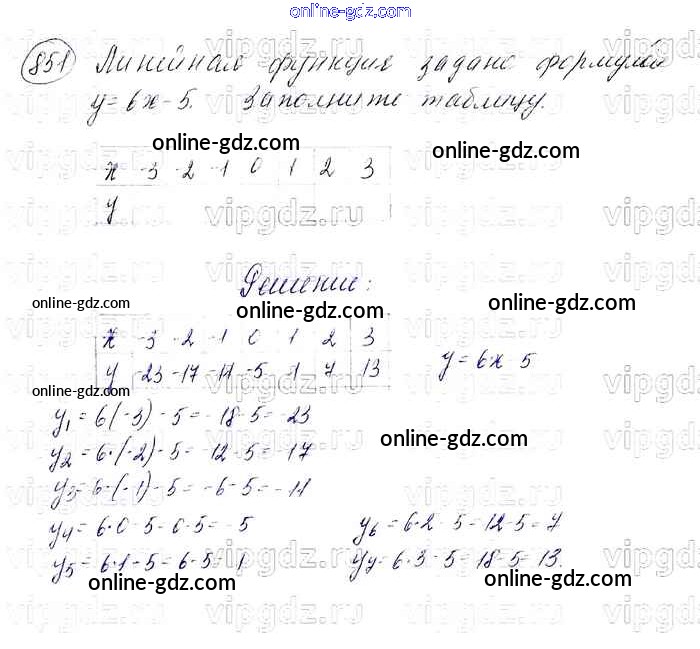 online-gdz.com
851 Линейная функция задано формулой
y = 6x - 5. Заполните таблицу.
online-gdz.com online-gdz.com
x -3 -2 -1 0 1 2 3
y
vipgdz.ru vipgdz.ru vipgdz
Решение:
online-gdz.com online-gdz.com
x -3 -2 -1 0 1 2 3
y -23 -17 -11 -5 1 7 13 y = 6x - 5
online-gdz.com
y₁ = 6(-3) - 5 = -18-5 = -23
y₂ = 6·(-2) - 5 = -12-5 = -17
online-gdz.com
y₃ = 6·(-1) - 5 = -6-5 = -11
y₄ = 6·0-5 = 0-5 = -5 y₆ = 6·2-5 = 12-5 = 7
y₅ = 6·1-5 = 6-5 = 1 y₇ = 6·3-5 = 18-5 = 13.
online-gdz.com online-gdz.com